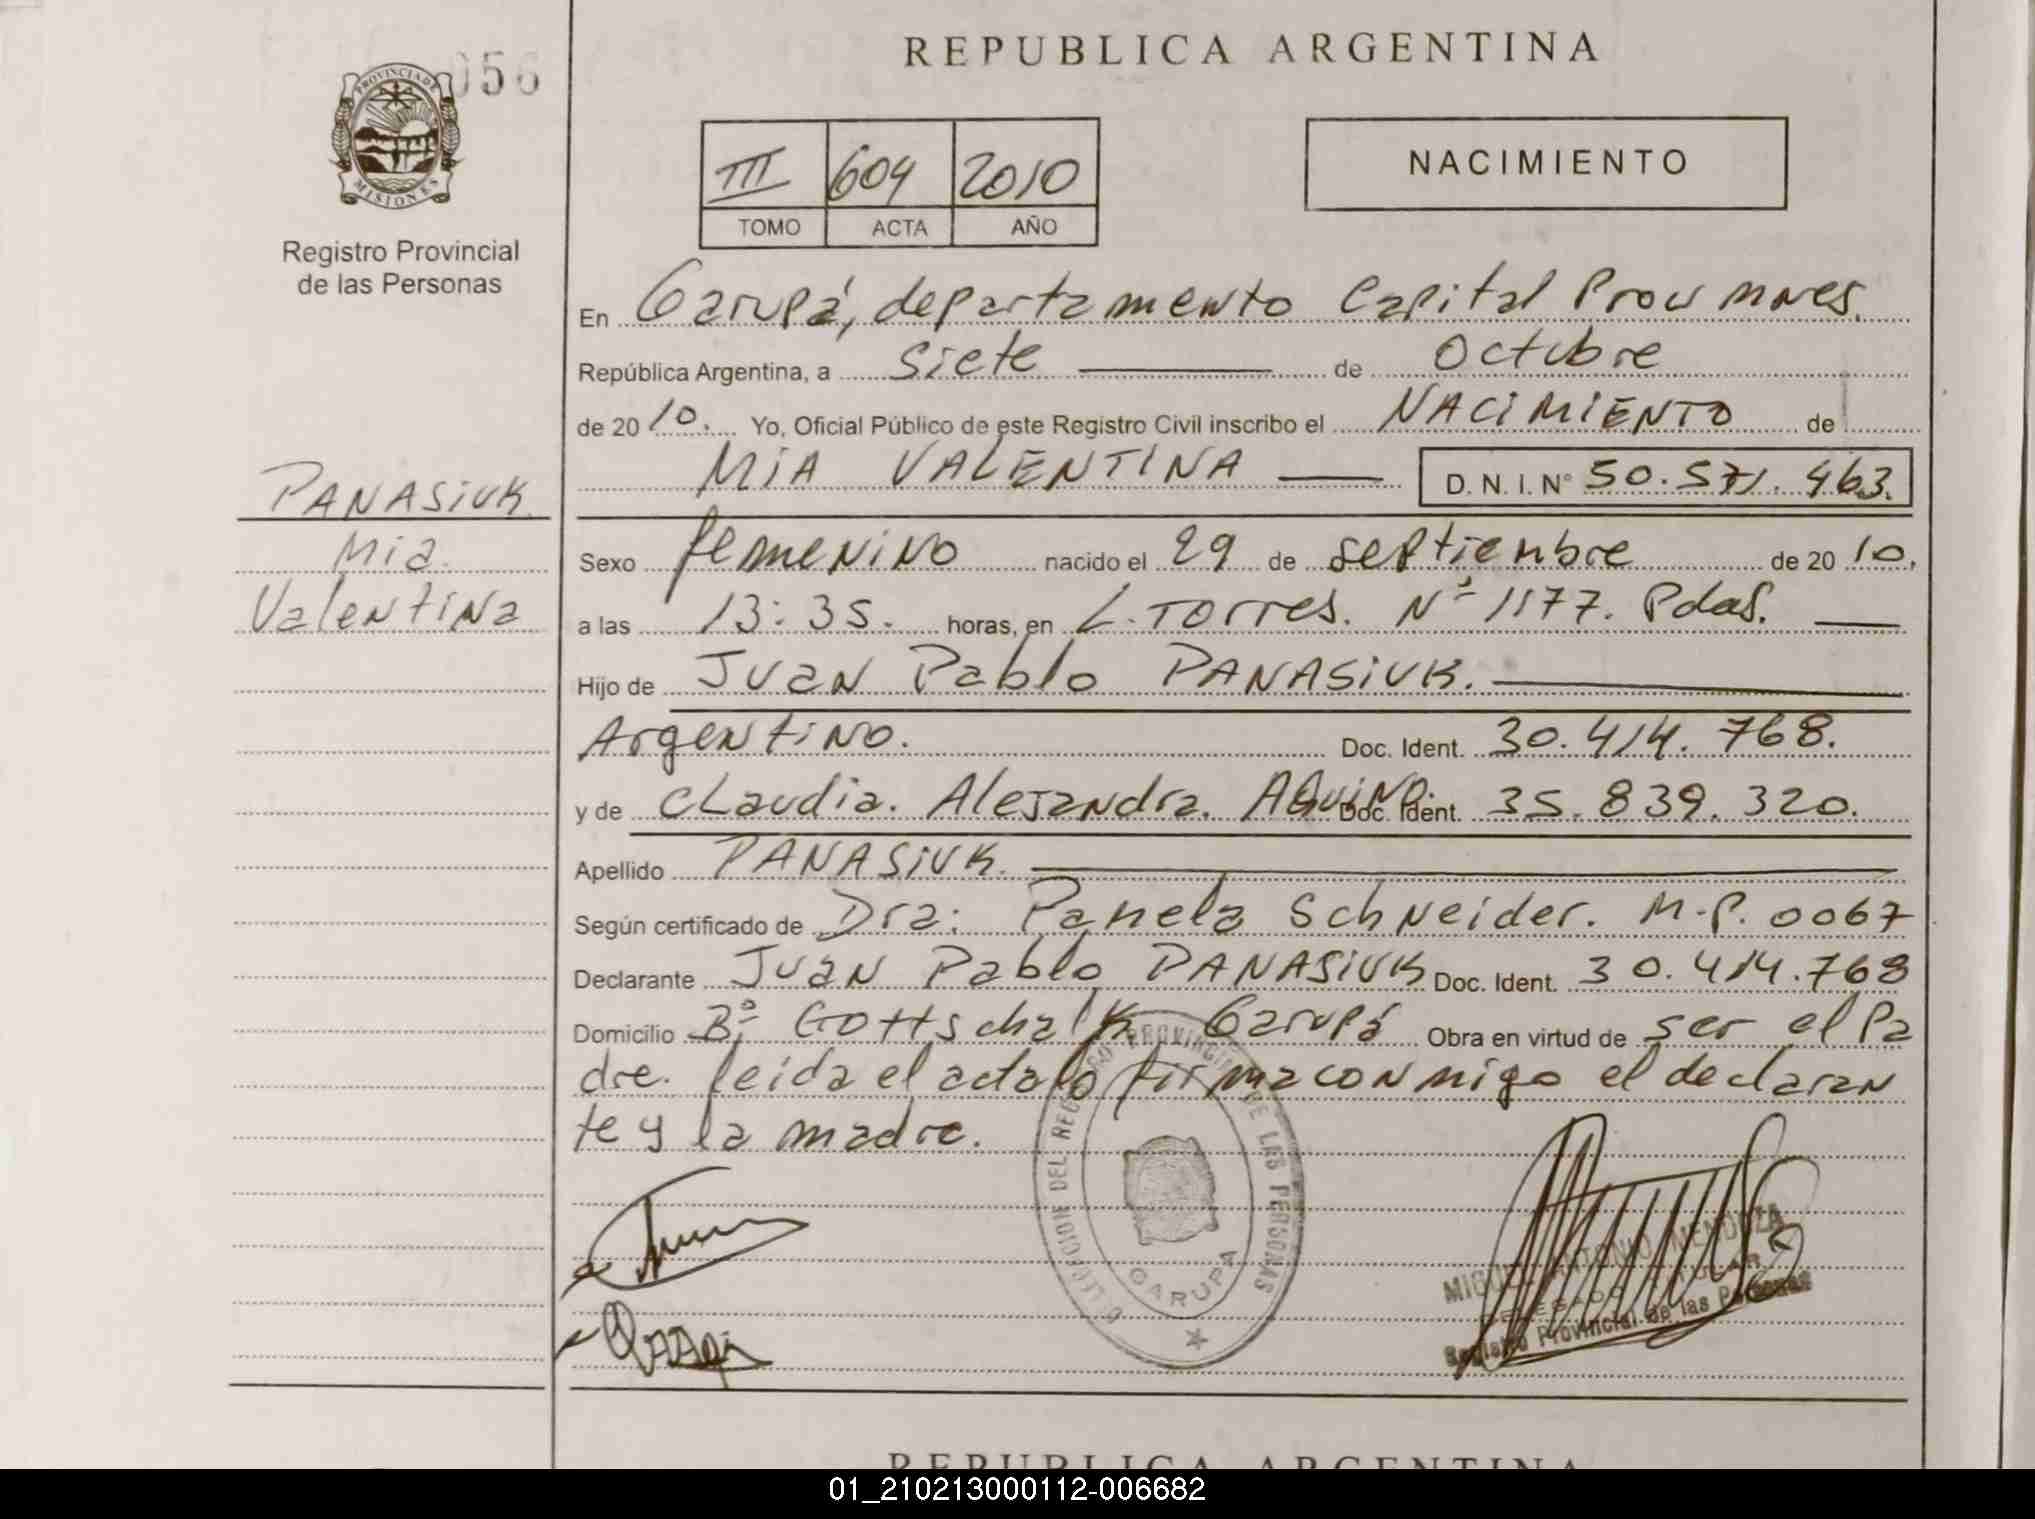 REPUBLICA ARGENTINA
056
PROVINCIA DE
MISIONES
Registro Provincial
de las Personas
III 604 2010
TOMO ACTA AÑO
NACIMIENTO
En Garupá, departamento Capital Prov
República Argentina, a siete de octubre
de 2010. Yo, Oficial Público de este Registro Civil inscribo el NACIMIENTO de
MIA VALENTINA D. N. I. N° 50.571.463.
PANASIUK
Mia.
Valentina
Sexo femenino nacido el 29 de septiembre de 2010.
a las 13:35. horas, en L. Torres. Nº 1177. Pdas.
Hijo de Juan Pablo PANASIUK.
Argentino. Doc. Ident. 30.414.768.
y de Claudia. Alejandra. AQuiNO. Doc. Ident. 35.839.320.
Apellido PANASIUK.
Según certificado de Dra: Pamela Schneider. M.P. 0067
Declarante Juan Pablo PANASIUK Doc. Ident. 30.414.768
Domicilio Bº Gottschalk Garupá Obra en virtud de ser el Pa
dre. leida el acta lo firma conmigo el declaran
te y la madre.
DELEGACION DEL REGISTRO PROVINCIAL DE LAS PERSONAS
GARUPA
MIGUEL ANTONIO MENDOZA
DELEGADO TITULAR
Registro Provincial de las Personas
REPUBLICA ARGENTINA
01_210213000112-006682